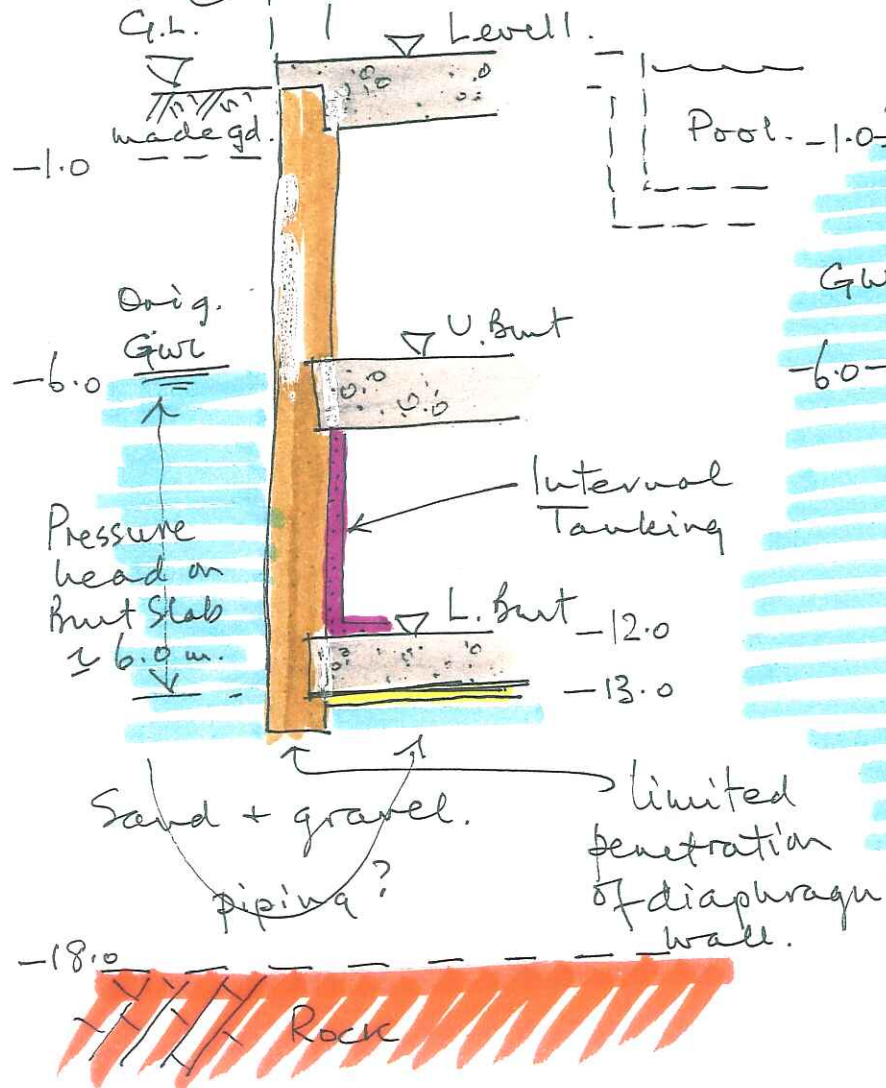 G.L.
Level 1.
made gd.
Pool.
-1.0
-1.0
Orig.
GWL
U. Bmt
GW
-6.0
-6.0
Internal
Tanking
Pressure
head on
Bmt Slab
≃ 6.0 m.
L. Bmt
-12.0
-13.0
Sand + gravel.
limited
penetration
of diaphragm
wall.
piping?
-18.0
Rock